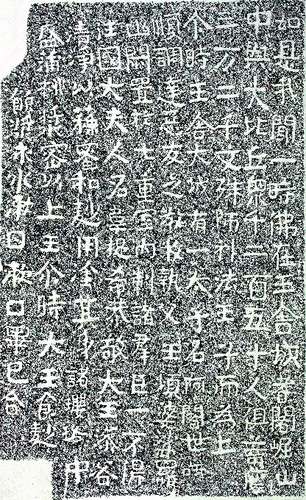 如是我聞一時佛住王舍城耆闍崛山
中與大比丘眾千二百五十人俱菩薩
三万二千文殊師利法王子而為上
尒時王舍大城有一太子名阿闍世隨
順調達惡友之教收執父王頻婆娑羅
幽閉置於七重室內制諸群臣一不得
往國大夫人名韋提希恭敬大王澡浴
清淨以蘇蜜和麨用塗其身諸瓔珞中
盛蒲桃漿密以上王尒時大王食麨
飲漿求水漱口漱口畢已合